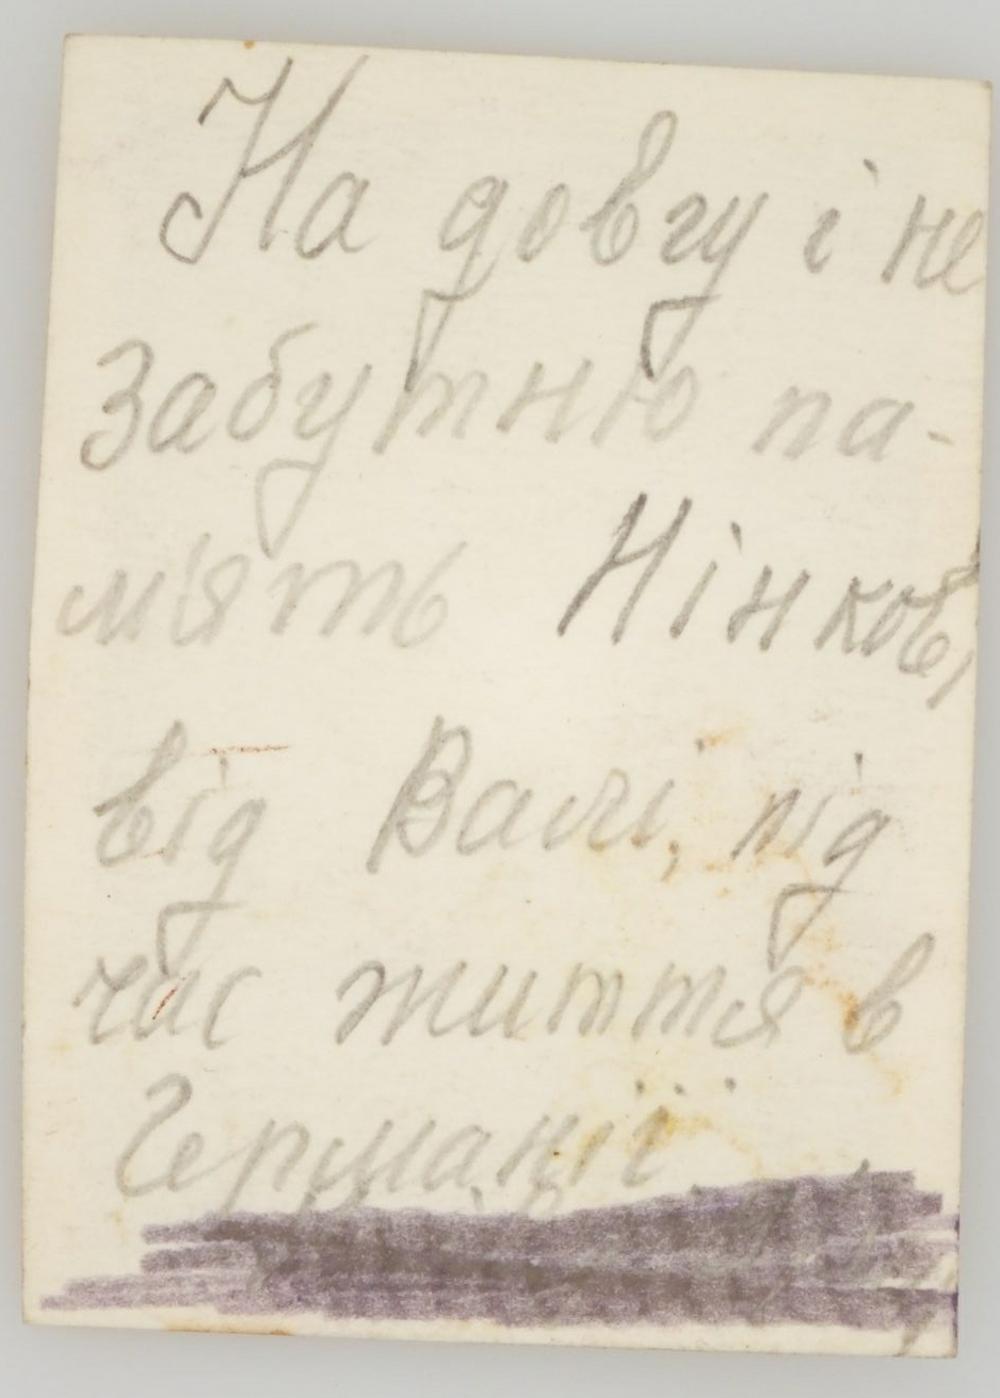 На довгу і не
забутню па-
м'ять Нінкові
від Валі, під
час життя в
Германії